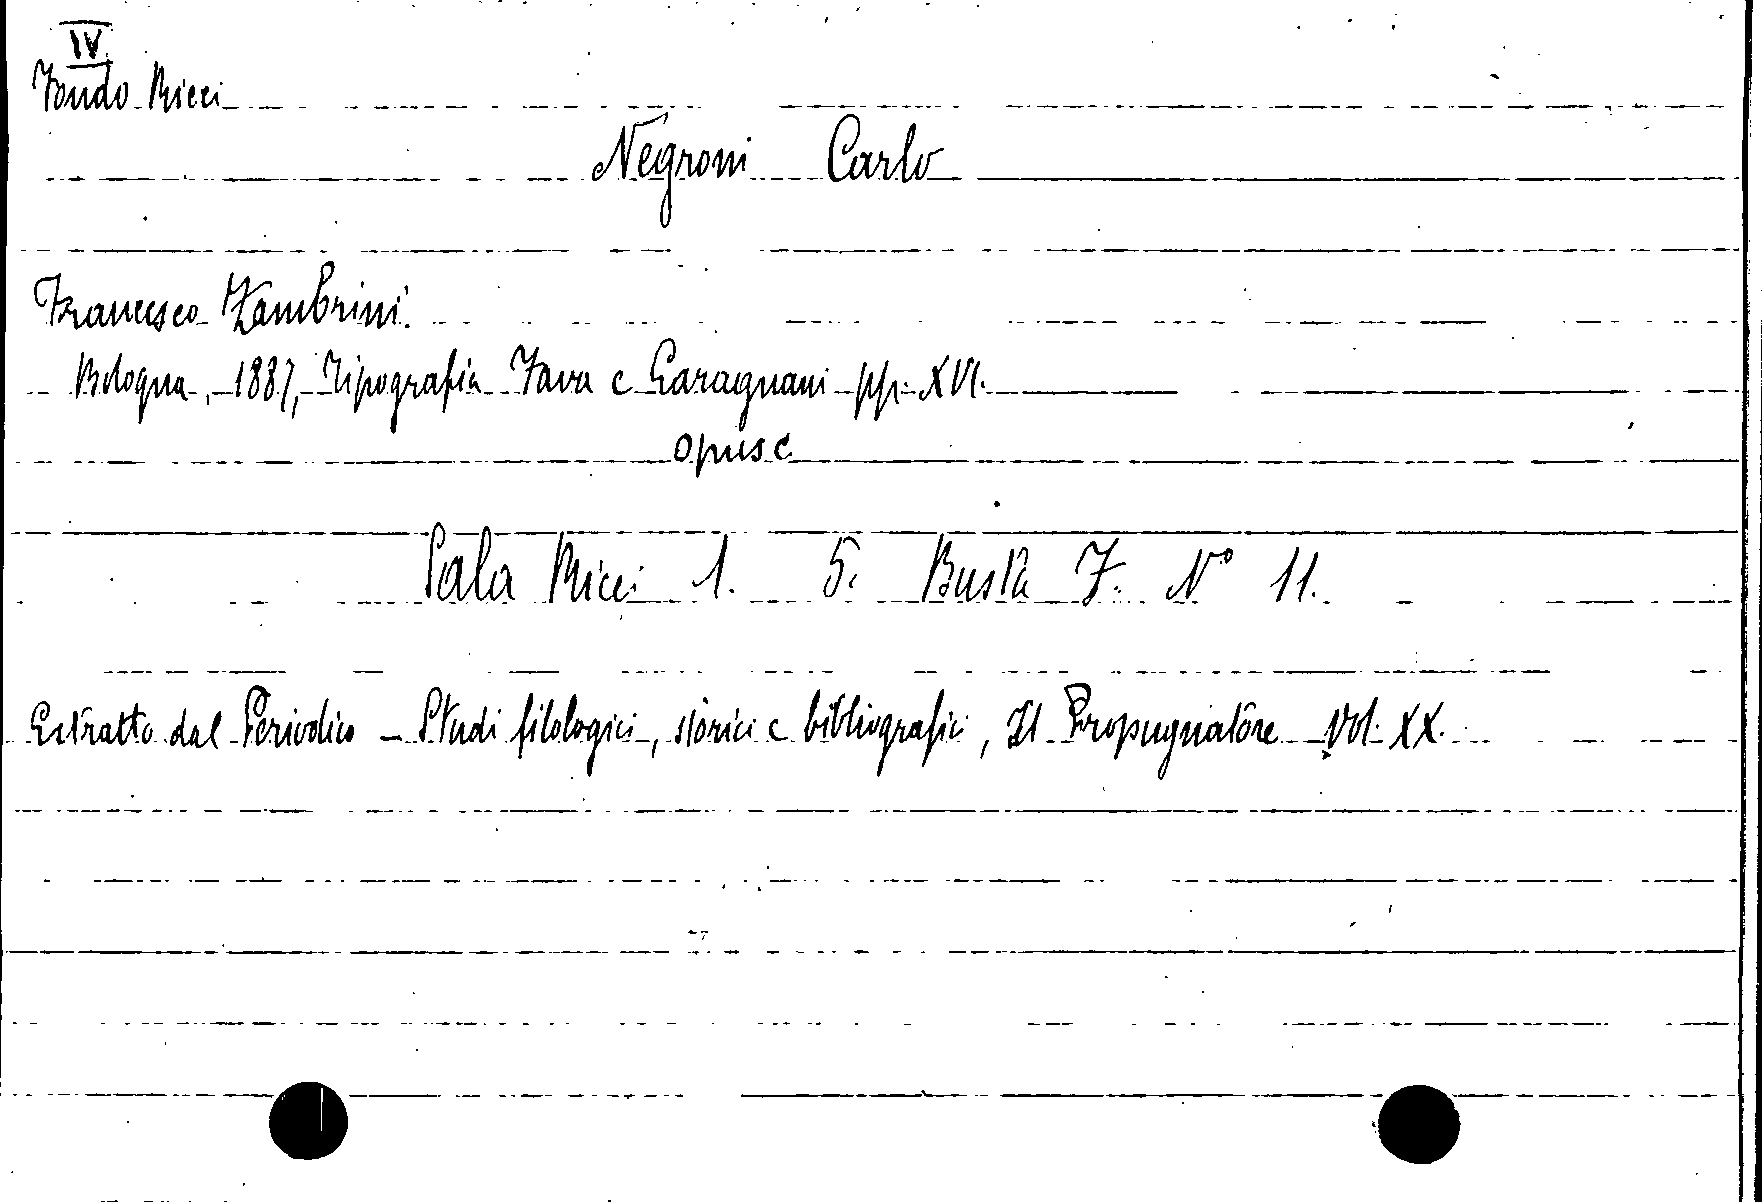 IV
Fondo Ricci
Negroni Carlo
Francesco Zambrini.
Bologna, 1887, Tipografia Fava e Garagnani pp. XVI.
opusc
Sala Ricci 1. 5. Busta F. N° 11.
Estratto dal Periodico - Studi filologici, storici e bibliografici, Il Propugnatore Vol. XX.